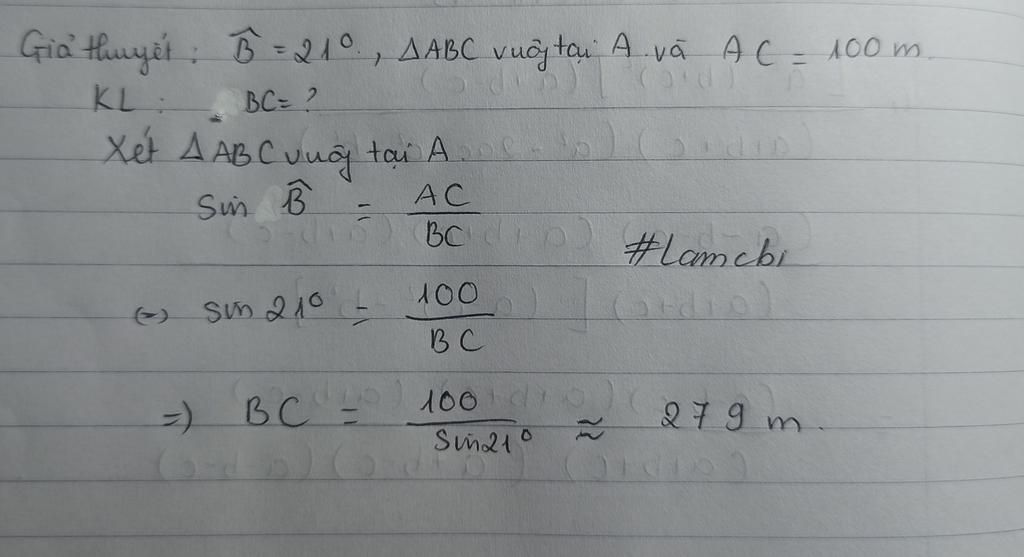 Giả thuyết : B̂ = 21°, ΔABC vuông tại A và AC = 100 m.
KL : BC = ?
Xét ΔABC vuông tại A.
Sin B̂ = AC / BC
#lamcbi
(=) sin 21° = 100 / BC
=) BC = 100 / Sin 21° ≈ 279 m.